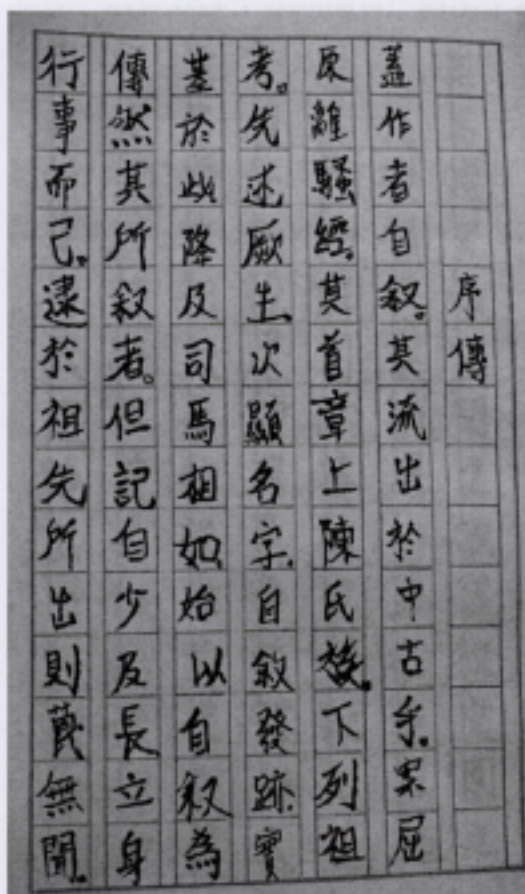 序傳
蓋作者自叙。其流出於中古乎。案屈
原離騷經。其首章上陳氏族。下列祖
考。先述厥生、次顯名字、自敘發跡、實
基於此降及司馬相如、始以自叙為
傳然其所叙者。但記自少及長立身
行事而己。逮於祖先所出則蔑無聞。